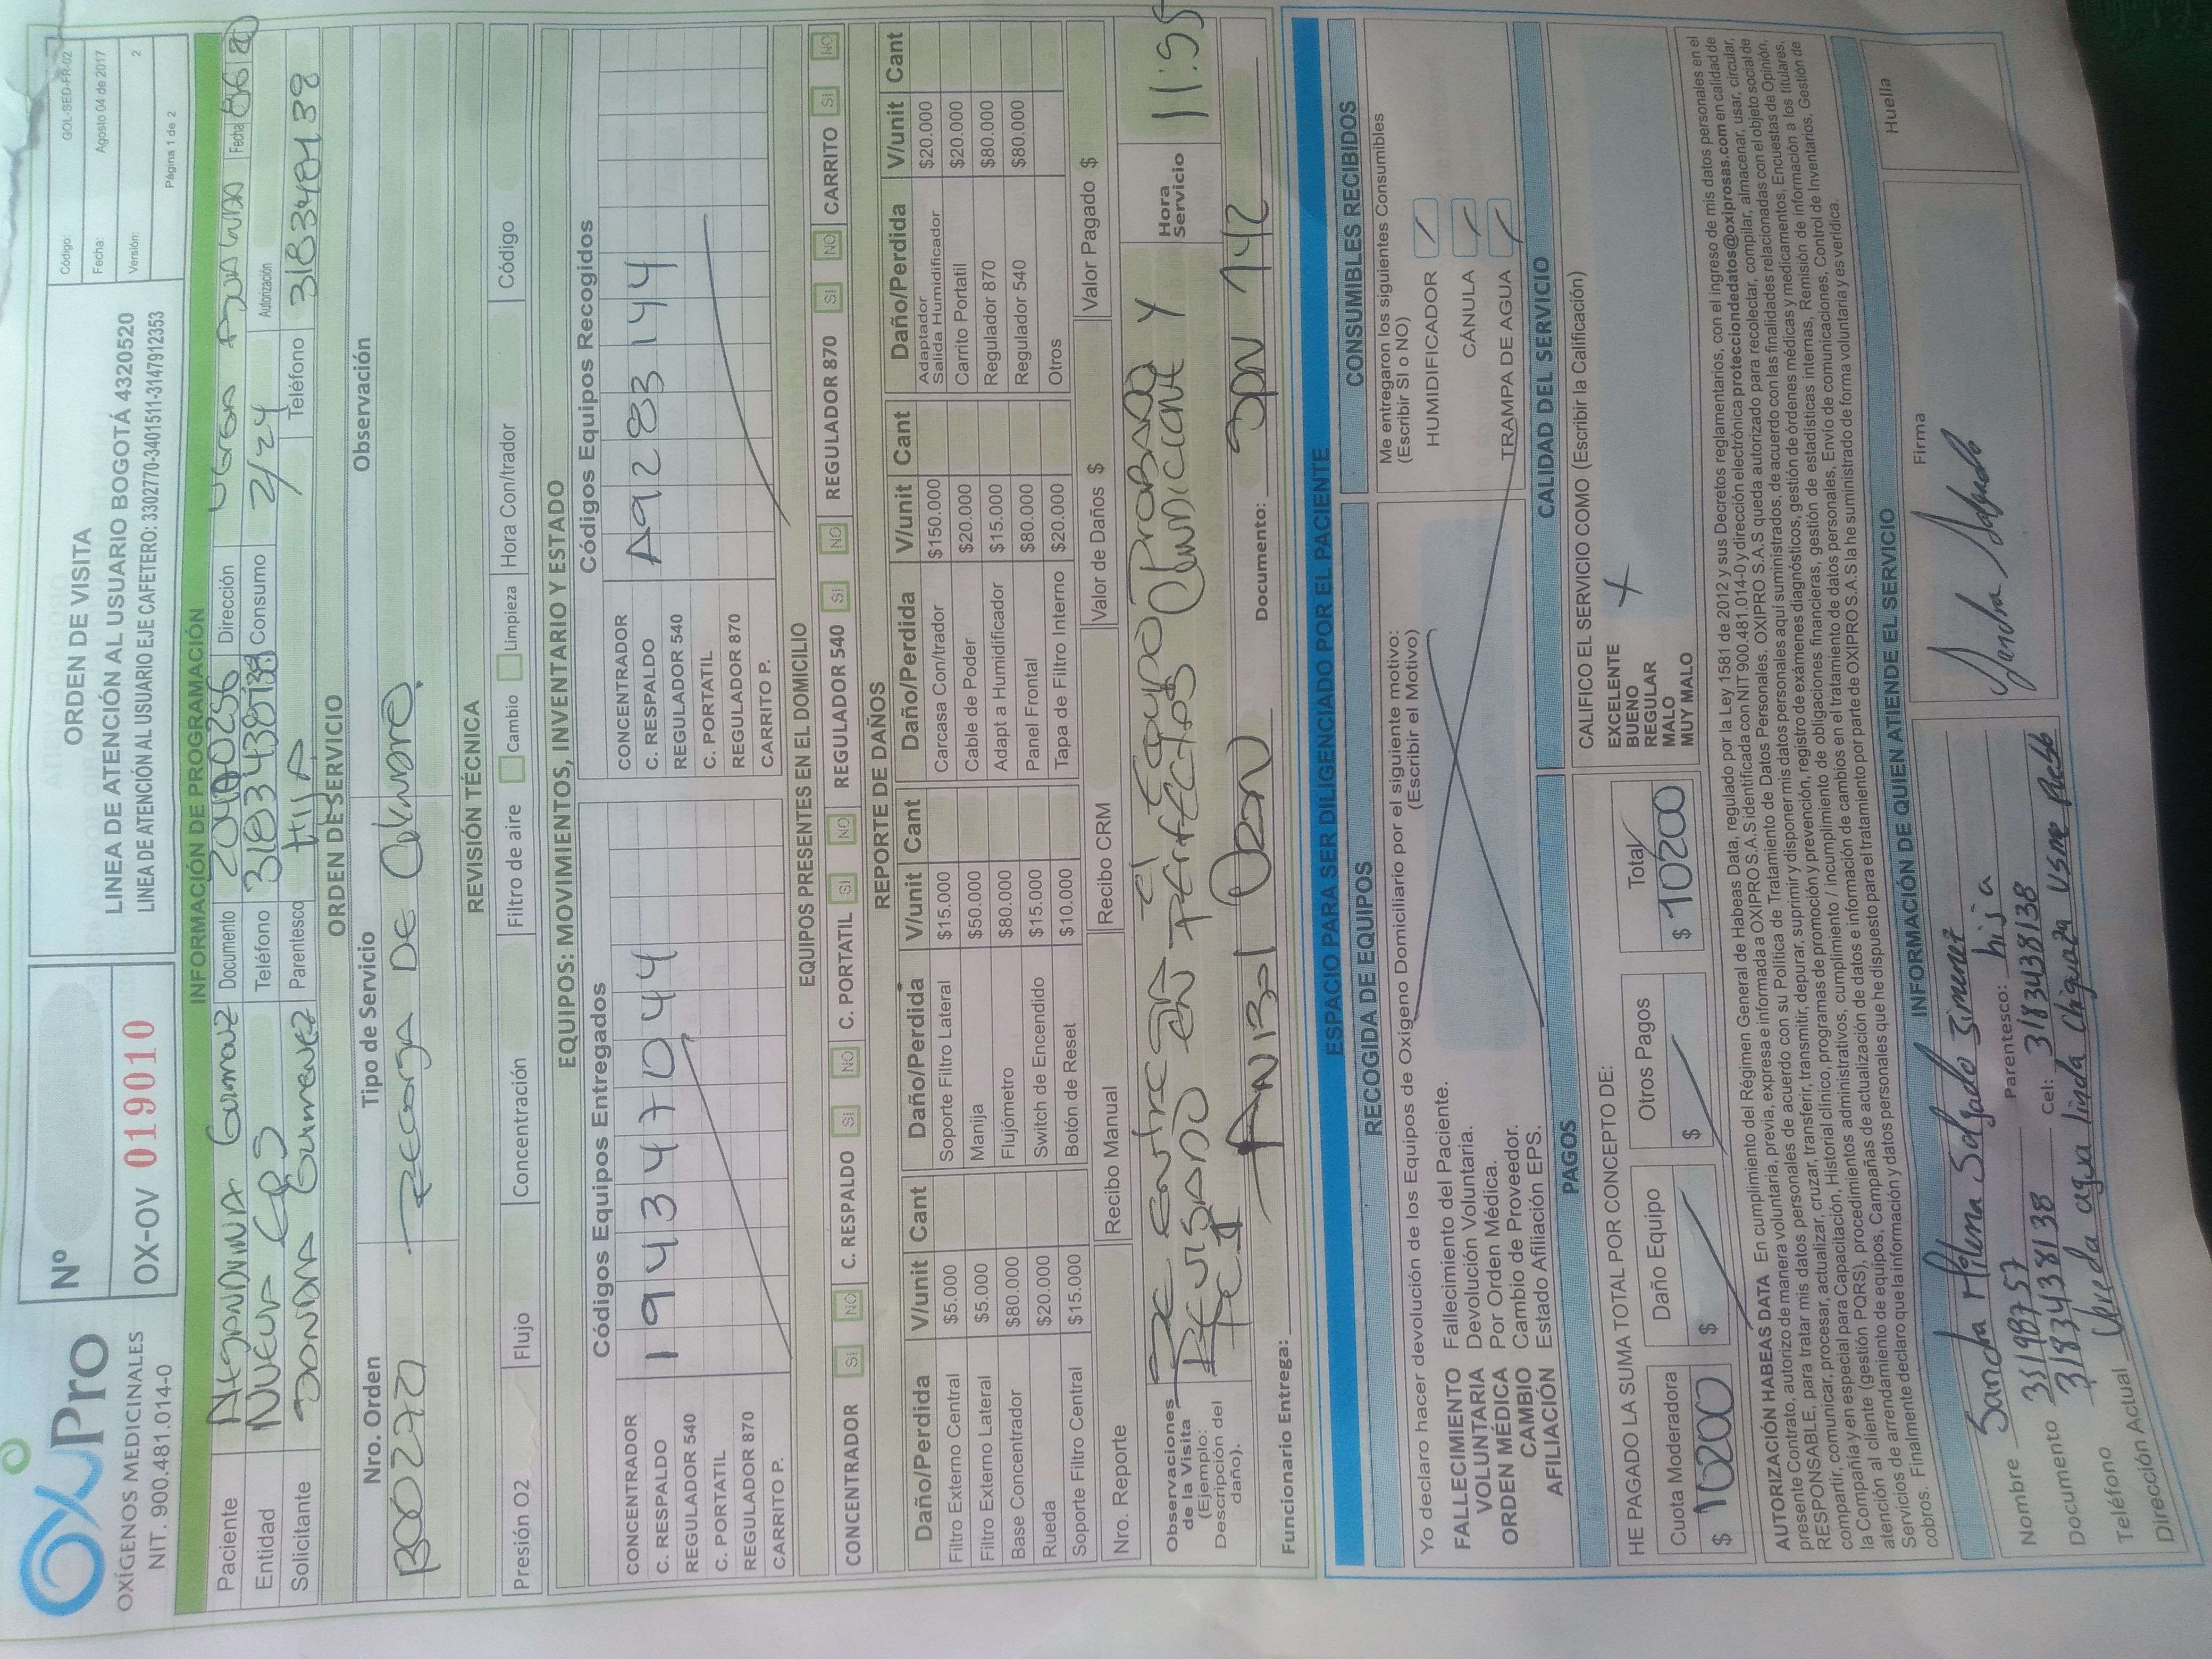 OxyPro
OXÍGENOS MEDICINALES
NIT. 900.481.014-0
Nº
OX-OV 019010
ORDEN DE VISITA
LINEA DE ATENCIÓN AL USUARIO BOGOTÁ 4320520
LINEA DE ATENCIÓN AL USUARIO EJE CAFETERO: 3302770-3401511-3147912353
Código: GOL-SED-FR-02
Fecha: Agosto 04 de 2017
Versión: 2
Página 1 de 2
INFORMACIÓN DE PROGRAMACIÓN
Paciente Documento Dirección Fecha
Entidad NUEVA EPS Teléfono 3183438138 Consumo 2/24 Autorización
Solicitante Parentesco HIJA Teléfono
ORDEN DE SERVICIO
Nro. Orden Tipo de Servicio Observación
RECARGA DE
REVISIÓN TÉCNICA
Presión O2 Flujo Concentración Filtro de aire Cambio Limpieza Hora Con/trador Código
EQUIPOS: MOVIMIENTOS, INVENTARIO Y ESTADO
Códigos Equipos Entregados Códigos Equipos Recogidos
CONCENTRADOR CONCENTRADOR
C. RESPALDO 194347044 C. RESPALDO A9283144
REGULADOR 540 REGULADOR 540
C. PORTATIL C. PORTATIL
REGULADOR 870 REGULADOR 870
CARRITO P. CARRITO P.
EQUIPOS PRESENTES EN EL DOMICILIO
CONCENTRADOR SI NO C. RESPALDO SI NO C. PORTATIL SI NO REGULADOR 540 SI NO REGULADOR 870 SI NO CARRITO SI NO
REPORTE DE DAÑOS
Daño/Perdida V/unit Cant Daño/Perdida V/unit Cant Daño/Perdida V/unit Cant Daño/Perdida V/unit Cant
Filtro Externo Central $5.000 Soporte Filtro Lateral $15.000 Carcasa Con/trador $150.000 Adaptador Salida Humidificador $20.000
Filtro Externo Lateral $5.000 Manija $50.000 Cable de Poder $20.000 Carrito Portatil $20.000
Base Concentrador $80.000 Flujómetro $80.000 Adapt a Humidificador $15.000 Regulador 870 $80.000
Rueda $20.000 Switch de Encendido $15.000 Panel Frontal $80.000 Regulador 540 $80.000
Soporte Filtro Central $15.000 Botón de Reset $10.000 Tapa de Filtro Interno $20.000 Otros
Nro. Reporte Recibo Manual Recibo CRM Valor de Daños $ Valor Pagado $
Observaciones de la Visita (Ejemplo: Descripción del daño).
SE ENTREGA El EQUIPO PROBADO Y
REVISADO EN PERFECTAS
Hora Servicio 11:55
Funcionario Entrega: Documento:
ESPACIO PARA SER DILIGENCIADO POR EL PACIENTE
RECOGIDA DE EQUIPOS
Yo declaro hacer devolución de los Equipos de Oxígeno Domiciliario por el siguiente motivo:
(Escribir el Motivo)
FALLECIMIENTO Fallecimiento del Paciente.
VOLUNTARIA Devolución Voluntaria.
ORDEN MÉDICA Por Orden Médica.
CAMBIO Cambio de Proveedor.
AFILIACIÓN Estado Afiliación EPS.
CONSUMIBLES RECIBIDOS
Me entregaron los siguientes Consumibles
(Escribir SI o NO)
HUMIDIFICADOR
CÁNULA
TRAMPA DE AGUA
PAGOS
HE PAGADO LA SUMA TOTAL POR CONCEPTO DE:
Cuota Moderadora Daño Equipo Otros Pagos Total
$ 10200 $ $ $ 10200
CALIDAD DEL SERVICIO
CALIFICO EL SERVICIO COMO (Escribir la Calificación)
EXCELENTE
BUENO
REGULAR
MALO
MUY MALO
AUTORIZACIÓN HABEAS DATA En cumplimiento del Régimen General de Habeas Data, regulado por la Ley 1581 de 2012 y sus Decretos reglamentarios, con el ingreso de mis datos personales en el
presente Contrato, autorizo de manera voluntaria, previa, expresa e informada a OXIPRO S.A.S identificada con NIT 900.481.014-0 y dirección electrónica protecciondedatos@oxiprosas.com en calidad de
RESPONSABLE, para tratar mis datos personales de acuerdo con su Política de Tratamiento de Datos Personales. OXIPRO S.A.S queda autorizado para recolectar, compilar, almacenar, usar, circular,
compartir, comunicar, procesar, actualizar, cruzar, transferir, transmitir, depurar, suprimir y disponer mis datos personales aquí suministrados, de acuerdo con las finalidades relacionadas con el objeto social de
la Compañía y en especial para Capacitación, Historial clínico, programas de promoción y prevención, registro de exámenes diagnósticos, gestión de órdenes médicas y medicamentos, Encuestas de Opinión,
atención al cliente (gestión PQRS), procedimientos administrativos, cumplimiento / incumplimiento de obligaciones financieras, gestión de estadísticas internas, Remisión de información a los titulares,
Servicios de arrendamiento de equipos, Campañas de actualización de datos e información de cambios en el tratamiento de datos personales, Envío de comunicaciones, Control de Inventarios, Gestión de
cobros. Finalmente declaro que la información y datos personales que he dispuesto para el tratamiento por parte de OXIPRO S.A.S la he suministrado de forma voluntaria y es verídica.
INFORMACIÓN DE QUIEN ATIENDE EL SERVICIO
Nombre Sandra Milena Salgado Jimenez
Documento Parentesco: hija
Teléfono 3183438138 Cel: 3183438138
Dirección Actual Vereda agua linda Chiguaza Usme
Firma
Sandra Salgado
Huella